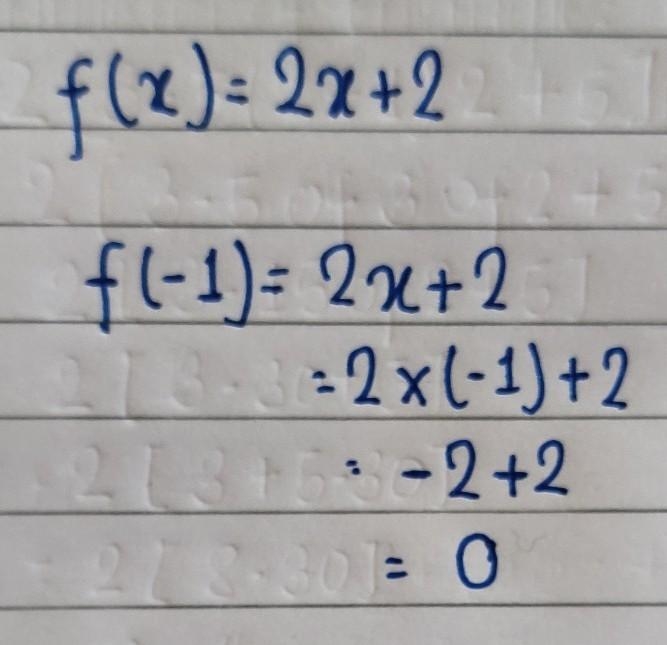 f(x) = 2x+2
f(-1) = 2x+2
= 2×(-1)+2
= -2+2
= 0